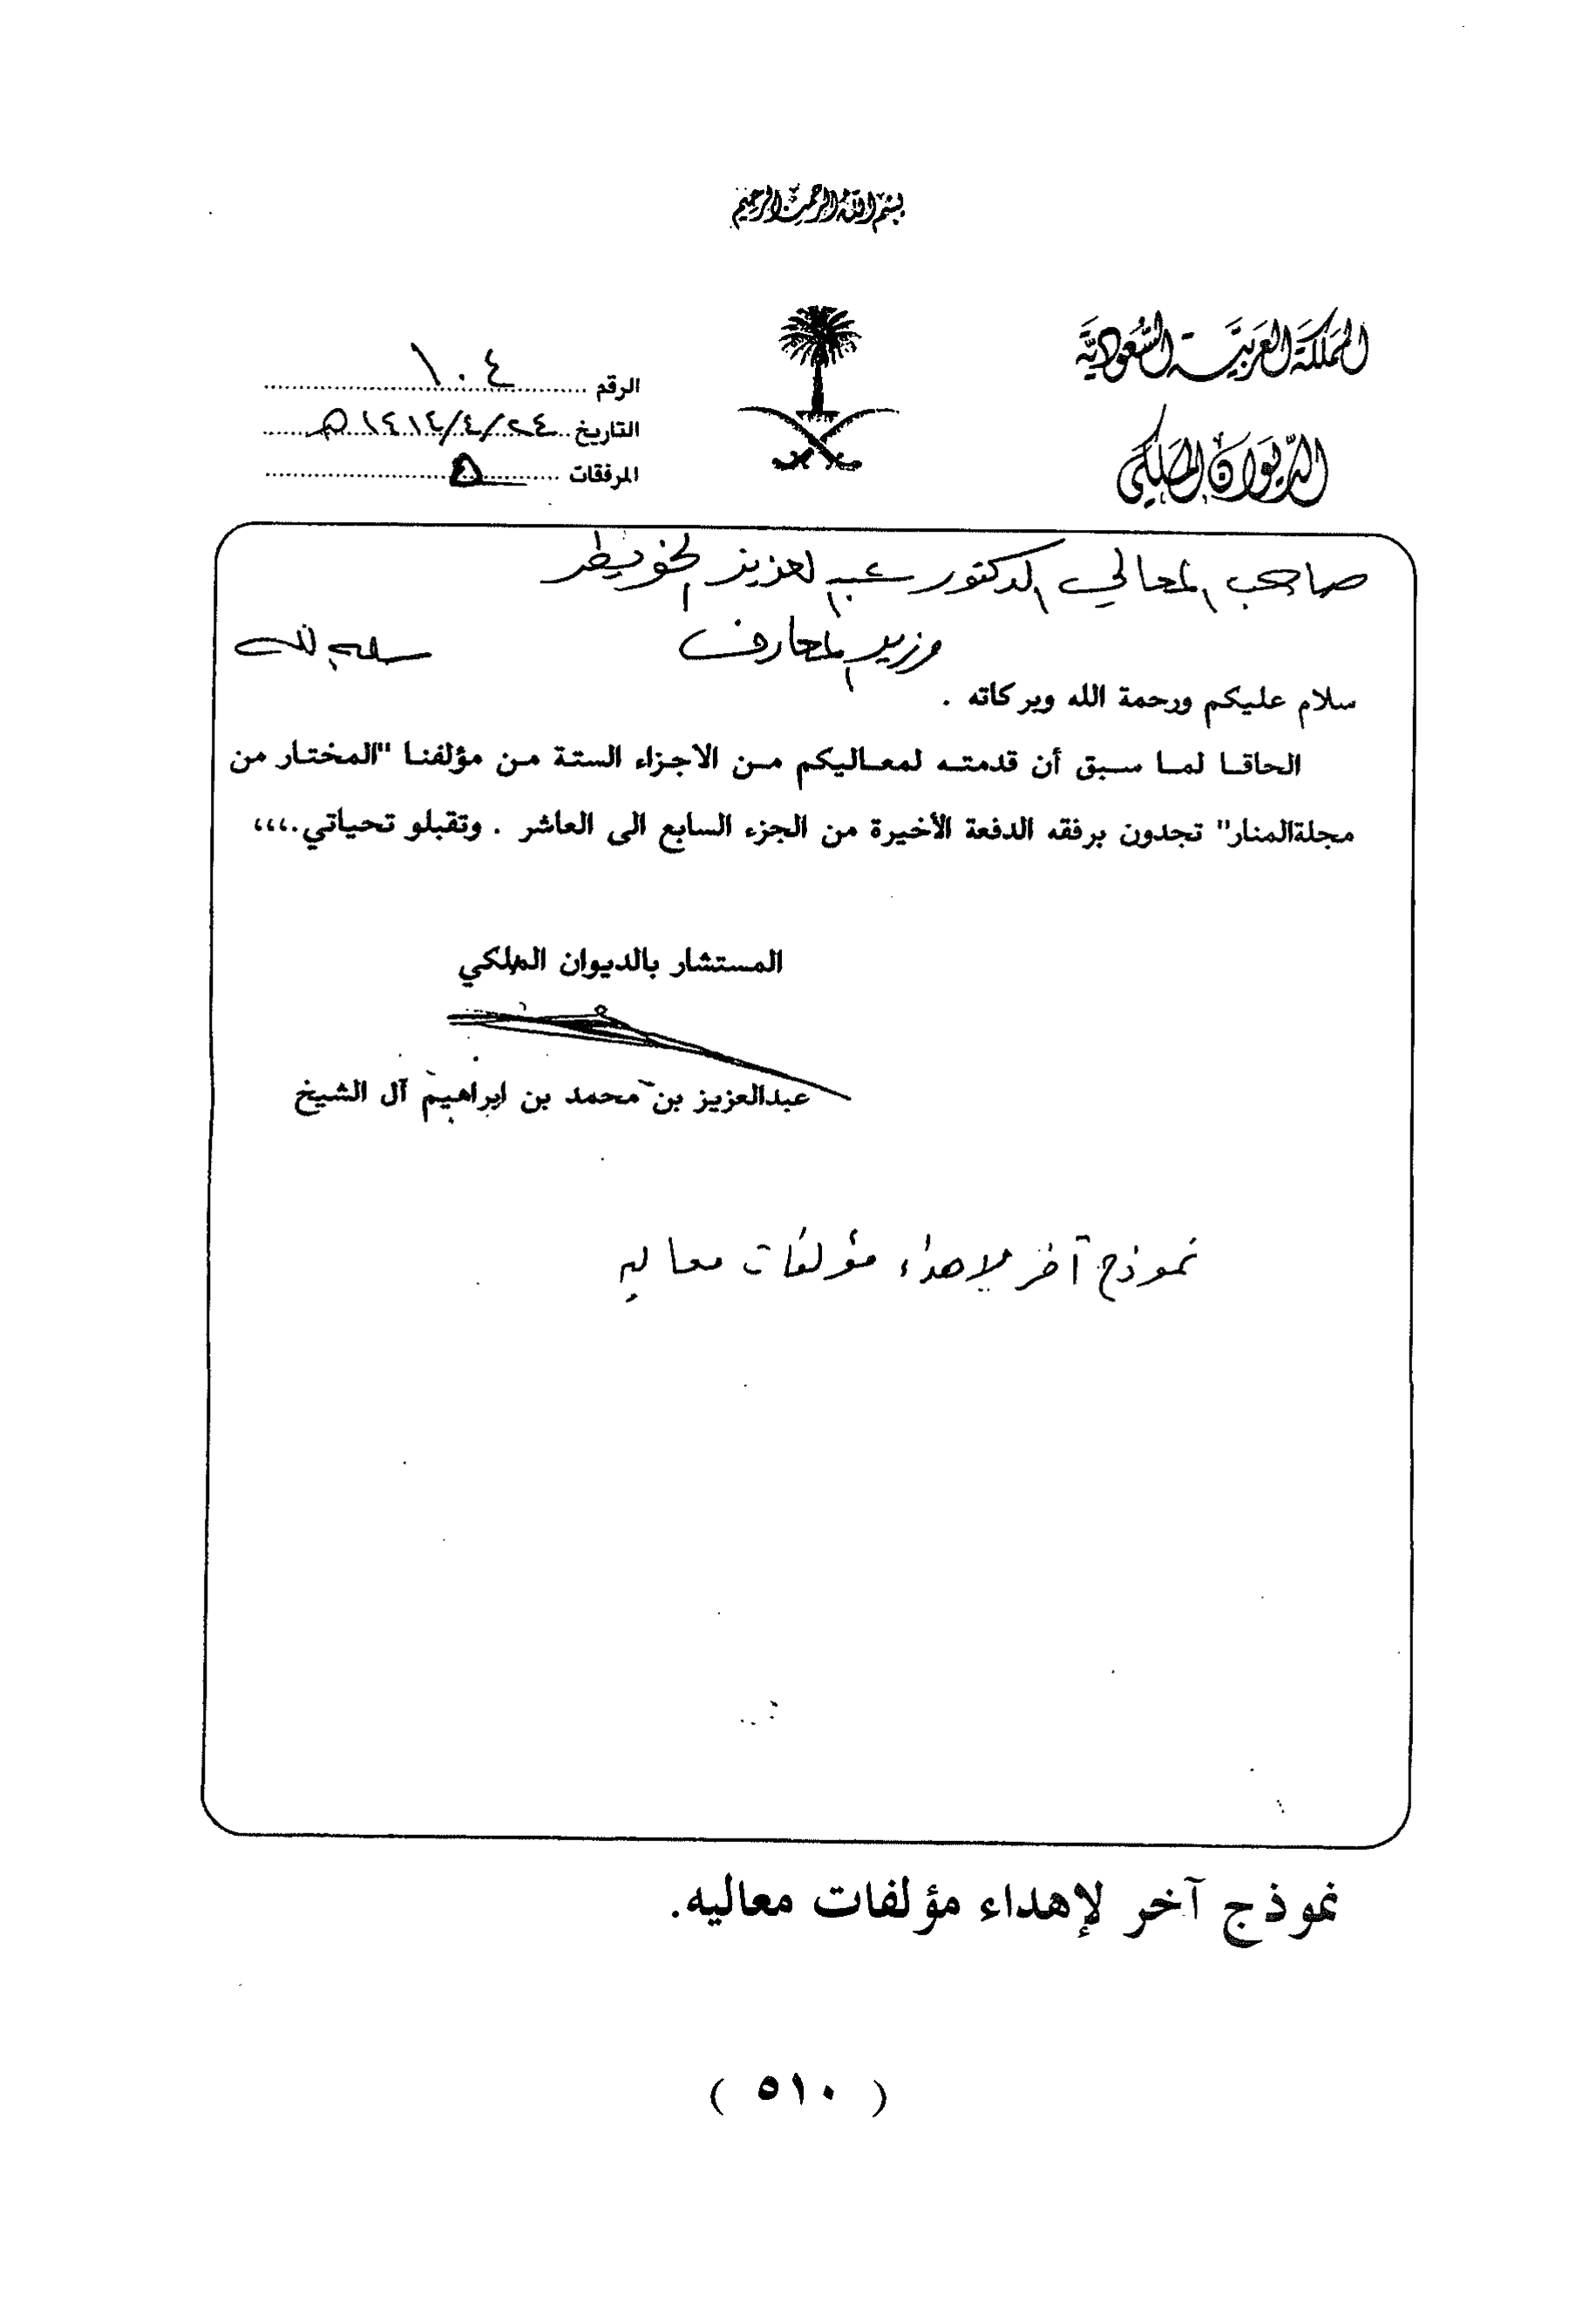 بسم الله الرحمن الرحيم
المملكة العربية السعودية
الديوان الملكي
الرقم ١٠٤
التاريخ ٢٤/٤/١٤١٤هـ
المرفقات
صاحب المعالي الدكتور عبدالعزيز الخويطر
وزير المعارف سلمه الله
سلام عليكم ورحمة الله وبركاته .
الحاقا لما سبق أن قدمته لمعاليكم من الاجزاء الستة من مؤلفنا "المختار من
مجلةالمنار" تجدون برفقه الدفعة الأخيرة من الجزء السابع الى العاشر . وتقبلو تحياتي.،،،
المستشار بالديوان الملكي
عبدالعزيز بن محمد بن ابراهيم آل الشيخ
نموذج آخر لاهداء مؤلفات معاليه
نموذج آخر لإهداء مؤلفات معاليه.
( ٥١٠ )